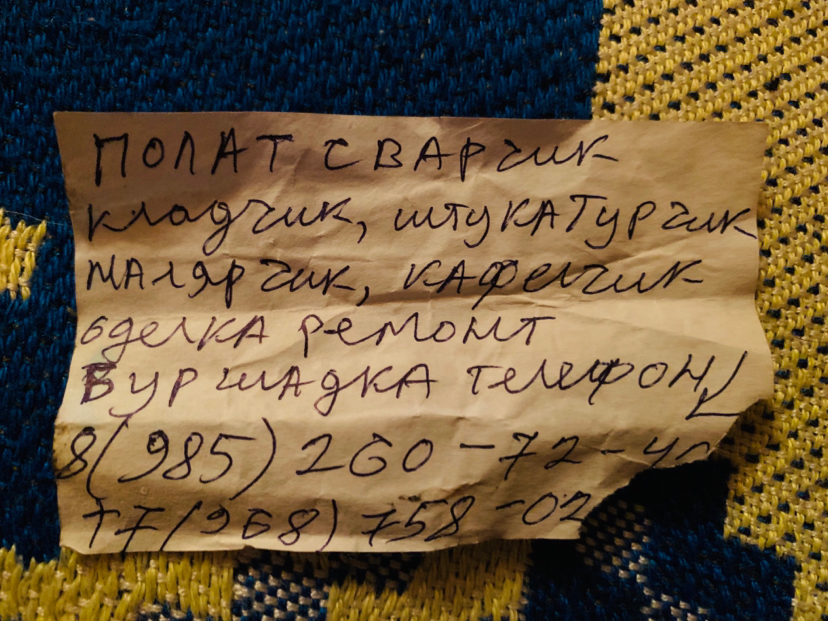 ПОЛАТ СВАРчик
кладчик, штукАТурчик
МАлярчик, КАФелчик
одеЛКА ремонт
БУРшАДКА ТелеФОН
8(985) 260-72-4
+7(968) 758-02